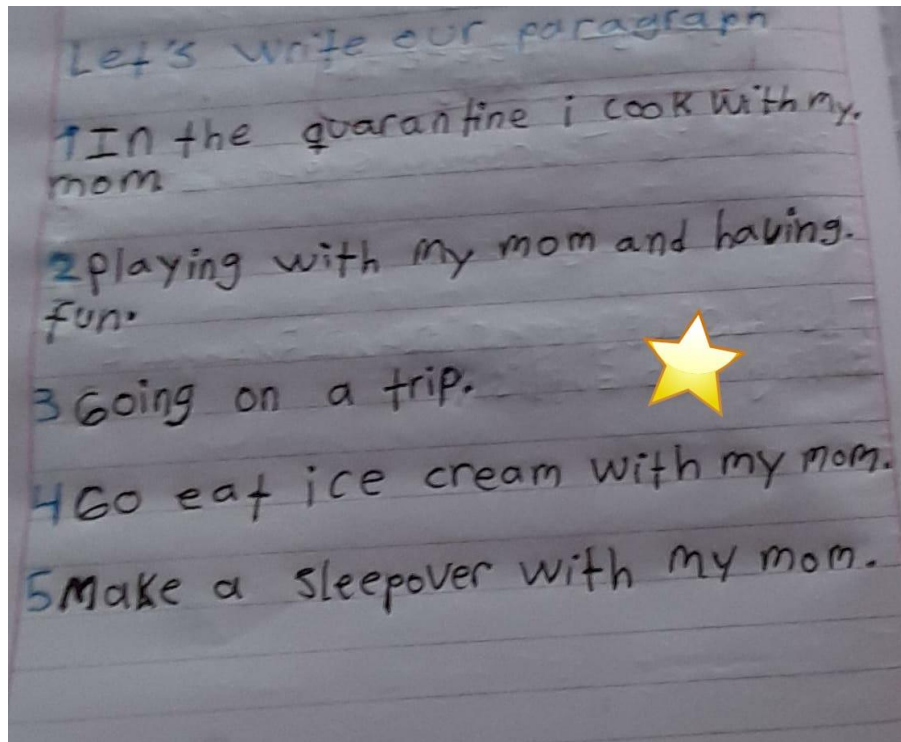 Let's write our paragraph
1 In the quarantine i cook with my.
mom
2 playing with my mom and having.
fun.
3 Going on a trip.
4 Go eat ice cream with my mom.
5 Make a sleepover with my mom.